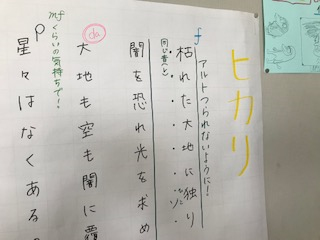 ヒカリ
アルトつられないように!
f
枯れた大地に独り
同じ音で
闇を恐れ光を求め
大地も空も闇に覆
mfくらいの気持ちで!
p
星々はなくある